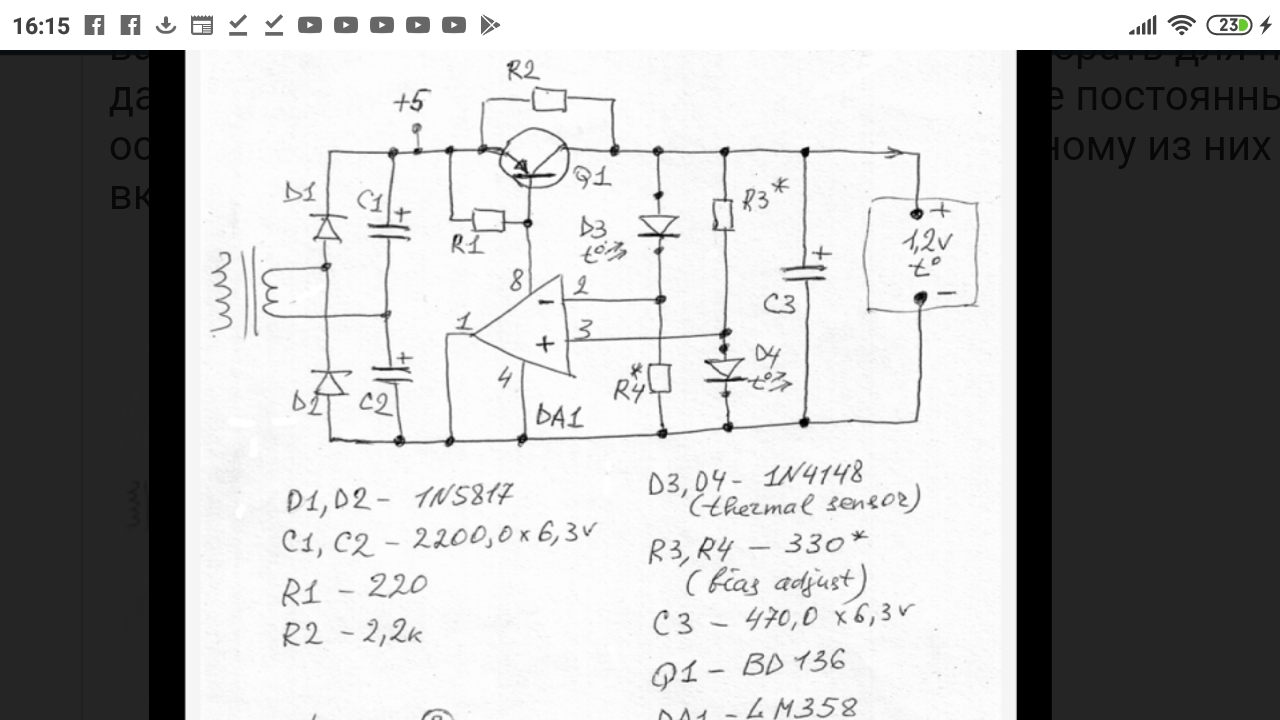 16:15
23
да
е постоянны
ос
ному из них
вк
R2
+5
D1
C1 +
R1
Q1
D3
t°
R3*
+
1,2v
t°
−
8
2
−
1
3
+
4
C3 +
D2
C2 +
DA1
*
R4
D4
t°
D1, D2 - 1N5817
C1, C2 - 2200,0 x 6,3v
R1 - 220
R2 - 2,2к
D3, D4 - 1N4148
(thermal sensor)
R3, R4 - 330*
(bias adjust)
C3 - 470,0 x 6,3v
Q1 - BD 136
DA1 - LM358